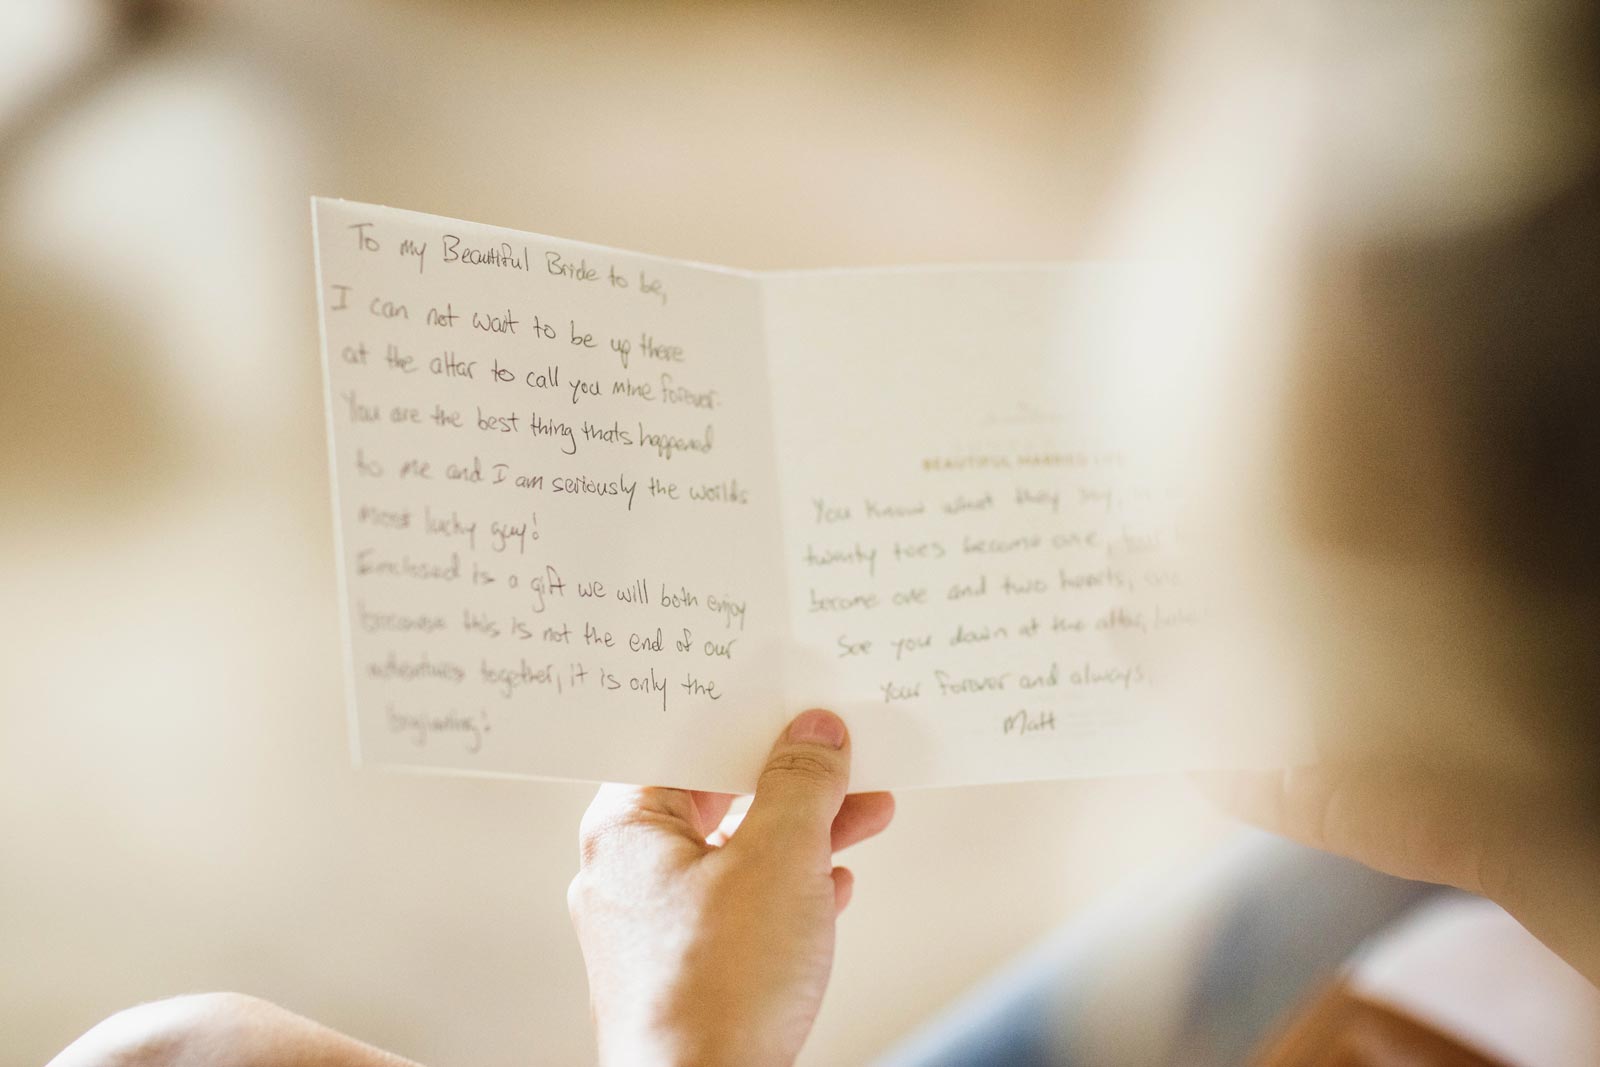 To my Beautiful Bride to be,
I can not wait to be up there
at the altar to call you mine forever.
You are the best thing thats happened
to me and I am seriously the worlds
most lucky guy!
Enclosed is a gift we will both enjoy
because this is not the end of our
adventures together, it is only the
beginning!
BEAUTIFUL MARRIED LIFE
You know what they say,
twenty toes become one,
become one and two hearts,
See you down at the altar,
Your forever and always,
Matt